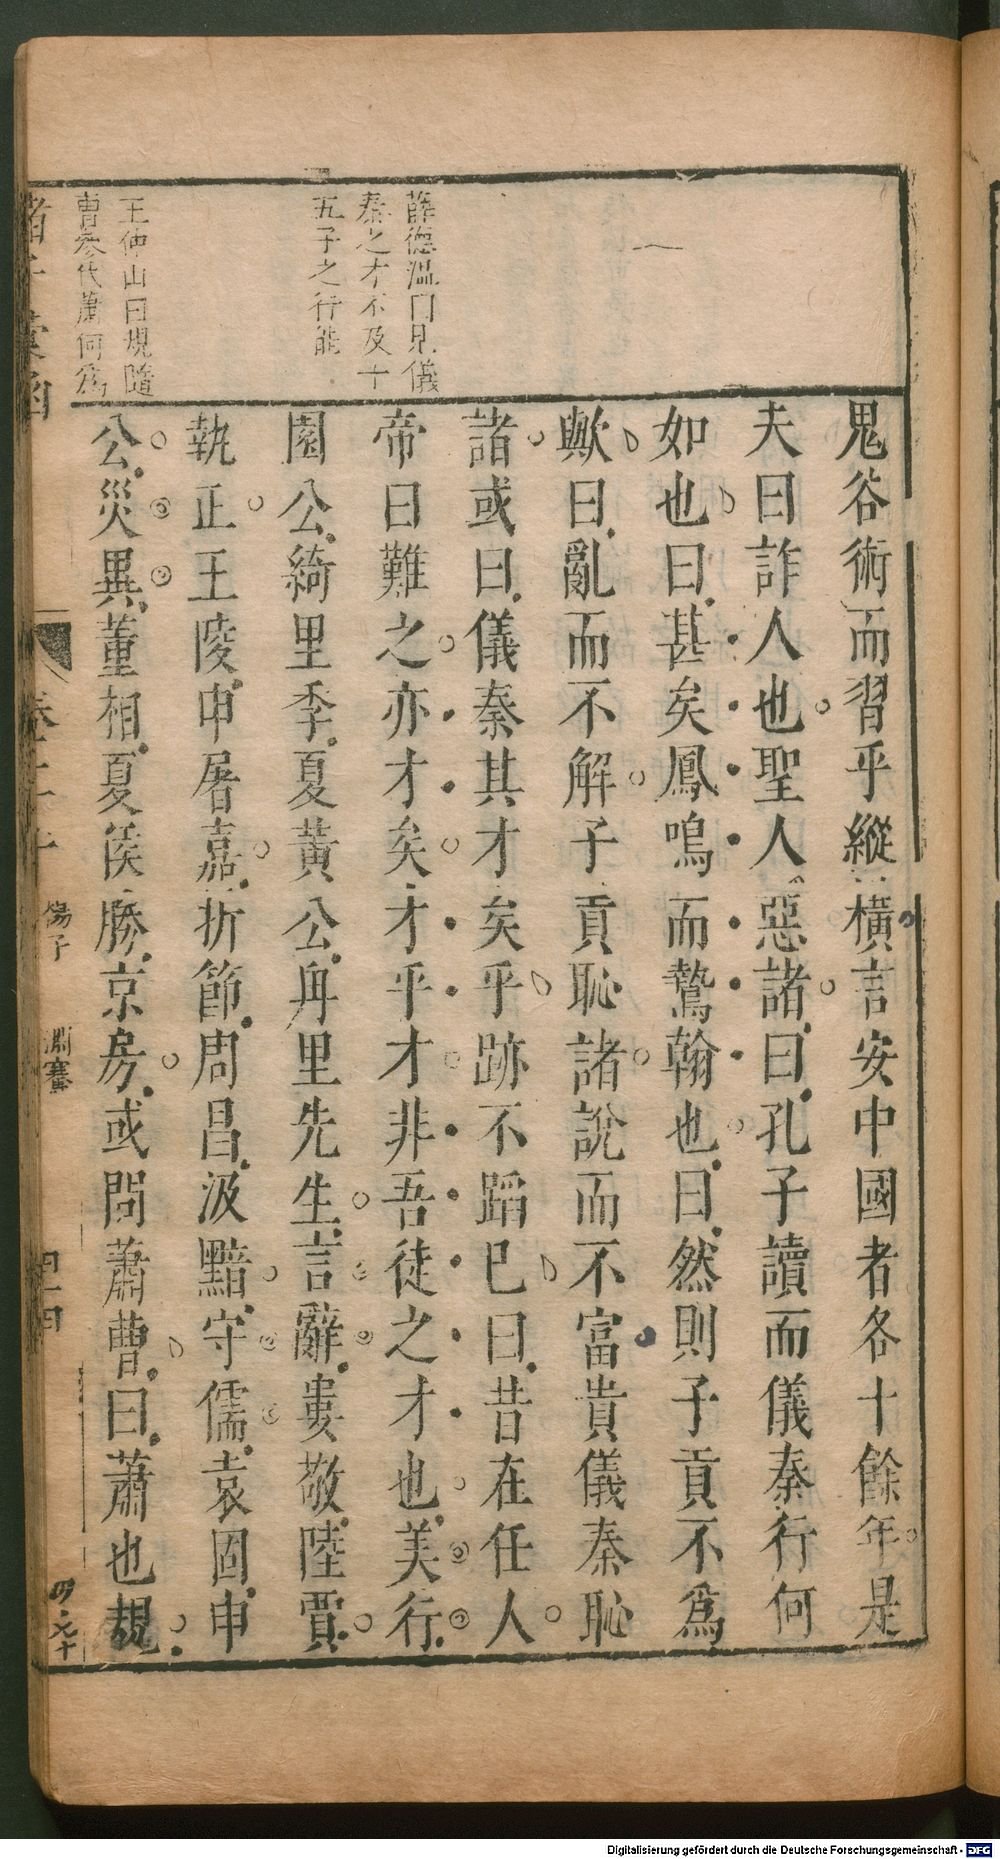 鬼谷術而習乎縱橫言安中國者各十餘年是
夫曰詐人也聖人惡諸曰孔子讀而儀秦行何
如也曰甚矣鳳鳴而鷙翰也曰然則子貢不爲
歟曰亂而不解子貢恥諸說而不富貴儀秦恥
諸或曰儀秦其才矣乎跡不蹈已曰昔在任人
帝曰難之亦才矣才乎才非吾徒之才也美行
園公綺里季夏黃公甪里先生言辭婁敬陸賈
執正王陵申屠嘉折節周昌汲黯守儒袁固申
公災異董相夏侯勝京房或問蕭曹曰蕭也規
薛德溫曰見儀
秦之才不及十
五子之行能
王仲山曰規隨
曹參代蕭何爲
諸子彙函
楊子 淵騫
Digitalisierung gefördert durch die Deutsche Forschungsgemeinschaft - DFG